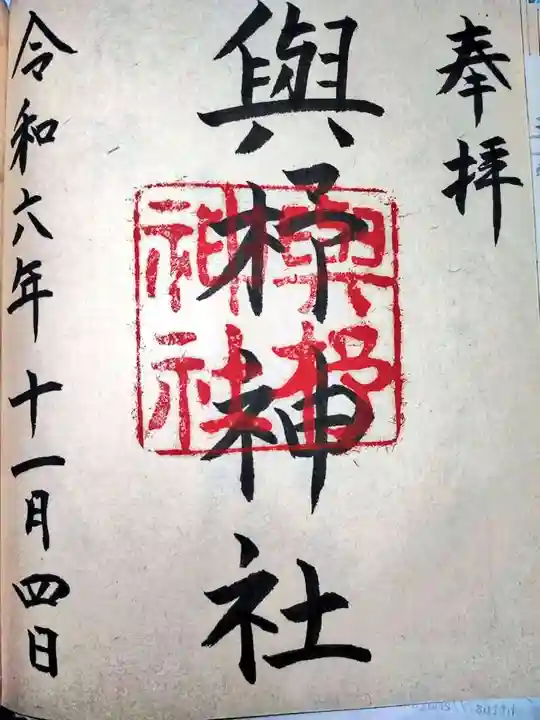 奉拝
與杼神社
與杼神社
令和六年十一月四日